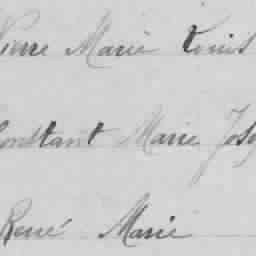 Pierre Marie Louis
Constant Marie Jose
René Marie